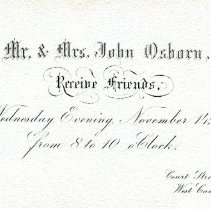 Mr. & Mrs. John Osborn,
Receive Friends,
Wednesday Evening, November 14
from 8 to 10 oClock.
Court
West